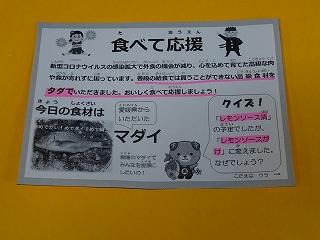 た おうえん
食べて応援
新型コロナウイルスの感染拡大で外食の機会が減り、心を込めて育てた高級な肉
や魚が売れずに困っています。普段の給食では買うことができない高級食材を
タダでいただきました。おいしく食べて応援しましょう!
きょう しょくざい
今日の食材は
愛媛県から
いただいた
マダイ
愛媛のマダイで
みんなを笑顔に
したいモン!
クイズ!
「レモンソース漬」
の予定でしたが、
「レモンソースが
け」に変えました。
なぜでしょう?
こたえは うら →